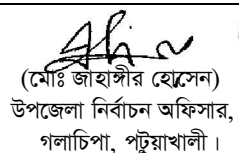 (মোঃ জাহাঙ্গীর হোসেন)
উপজেলা নির্বাচন অফিসার,
গলাচিপা, পটুয়াখালী।